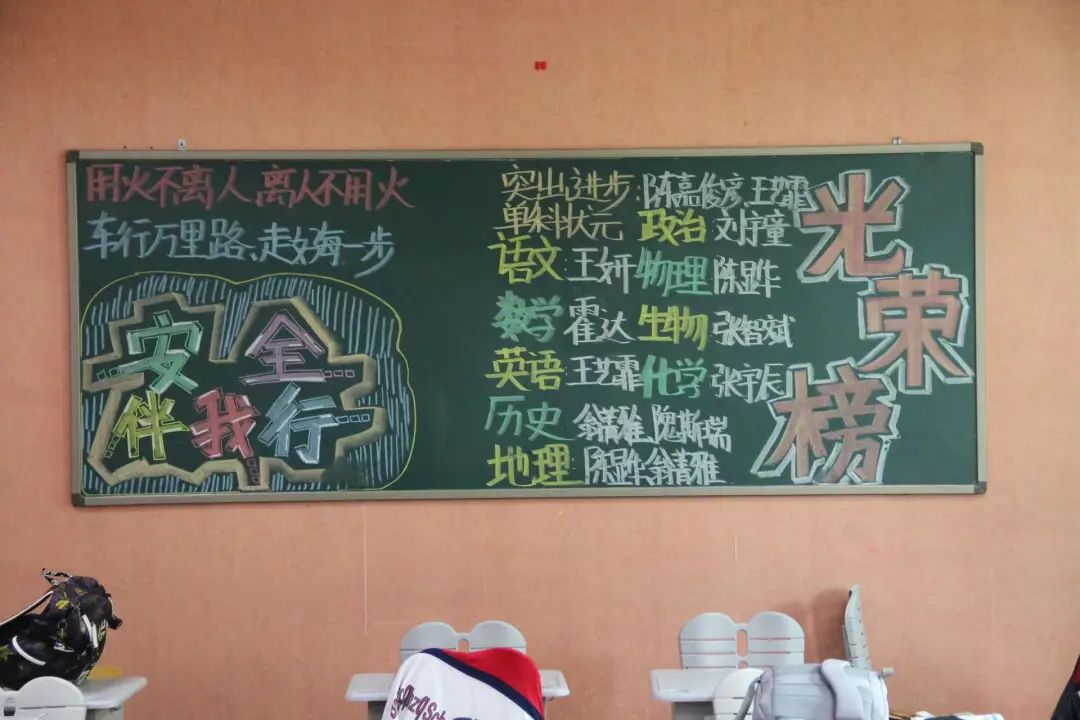 用火不离人离人不用火
车行万里路、走好每一步
安全
伴我行
突出进步:陈嘉俊彦、王艺霏
单科状元 政治:刘宇童
语文:王妍 物理:陈显华
数学:霍达 生物:张智斌
英语:王艺霏 化学:张宇辰
历史:翁靖雅、隗斯瑞
地理:陈显华、翁靖雅
光荣榜